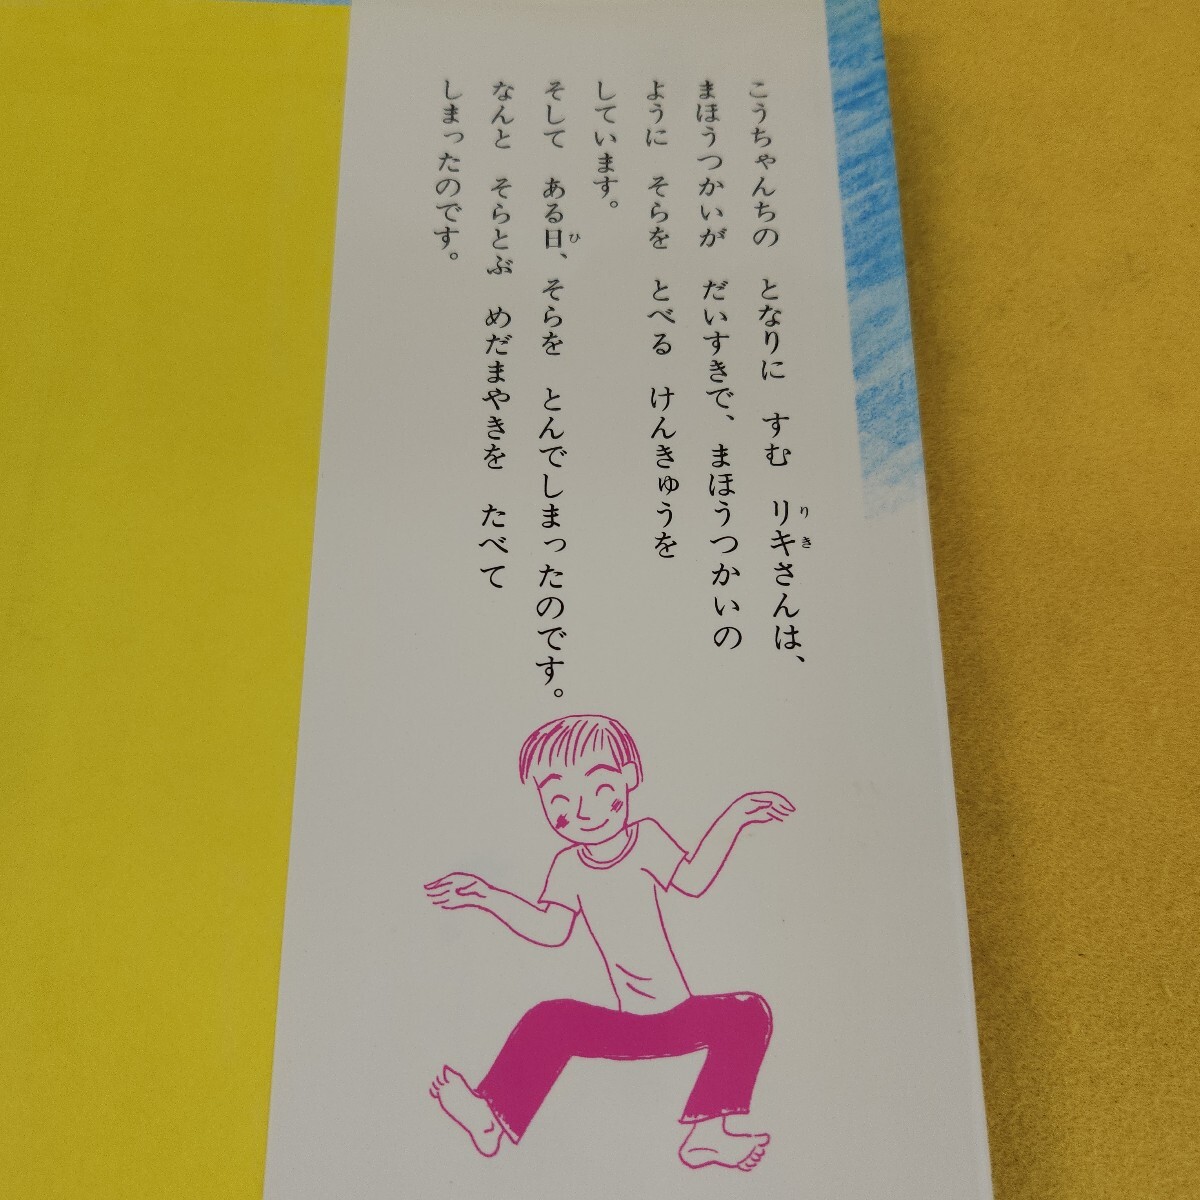 こうちゃんちの となりに すむ リキさんは、
まほうつかいが だいすきで、まほうつかいの
ように そらを とべる けんきゅうを
しています。
そして ある日、そらを とんでしまったのです。
なんと そらとぶ めだまやきを たべて
しまったのです。